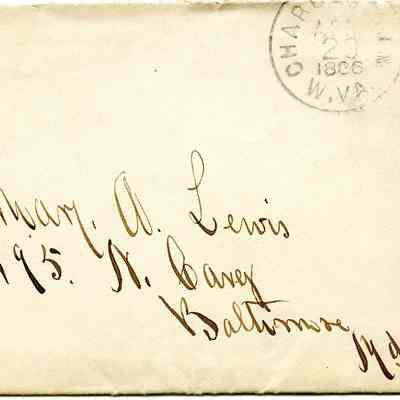 CHARL
23
1886
W.VA
Mary. A. Lewis
195. N. Carey
Baltimore
Md